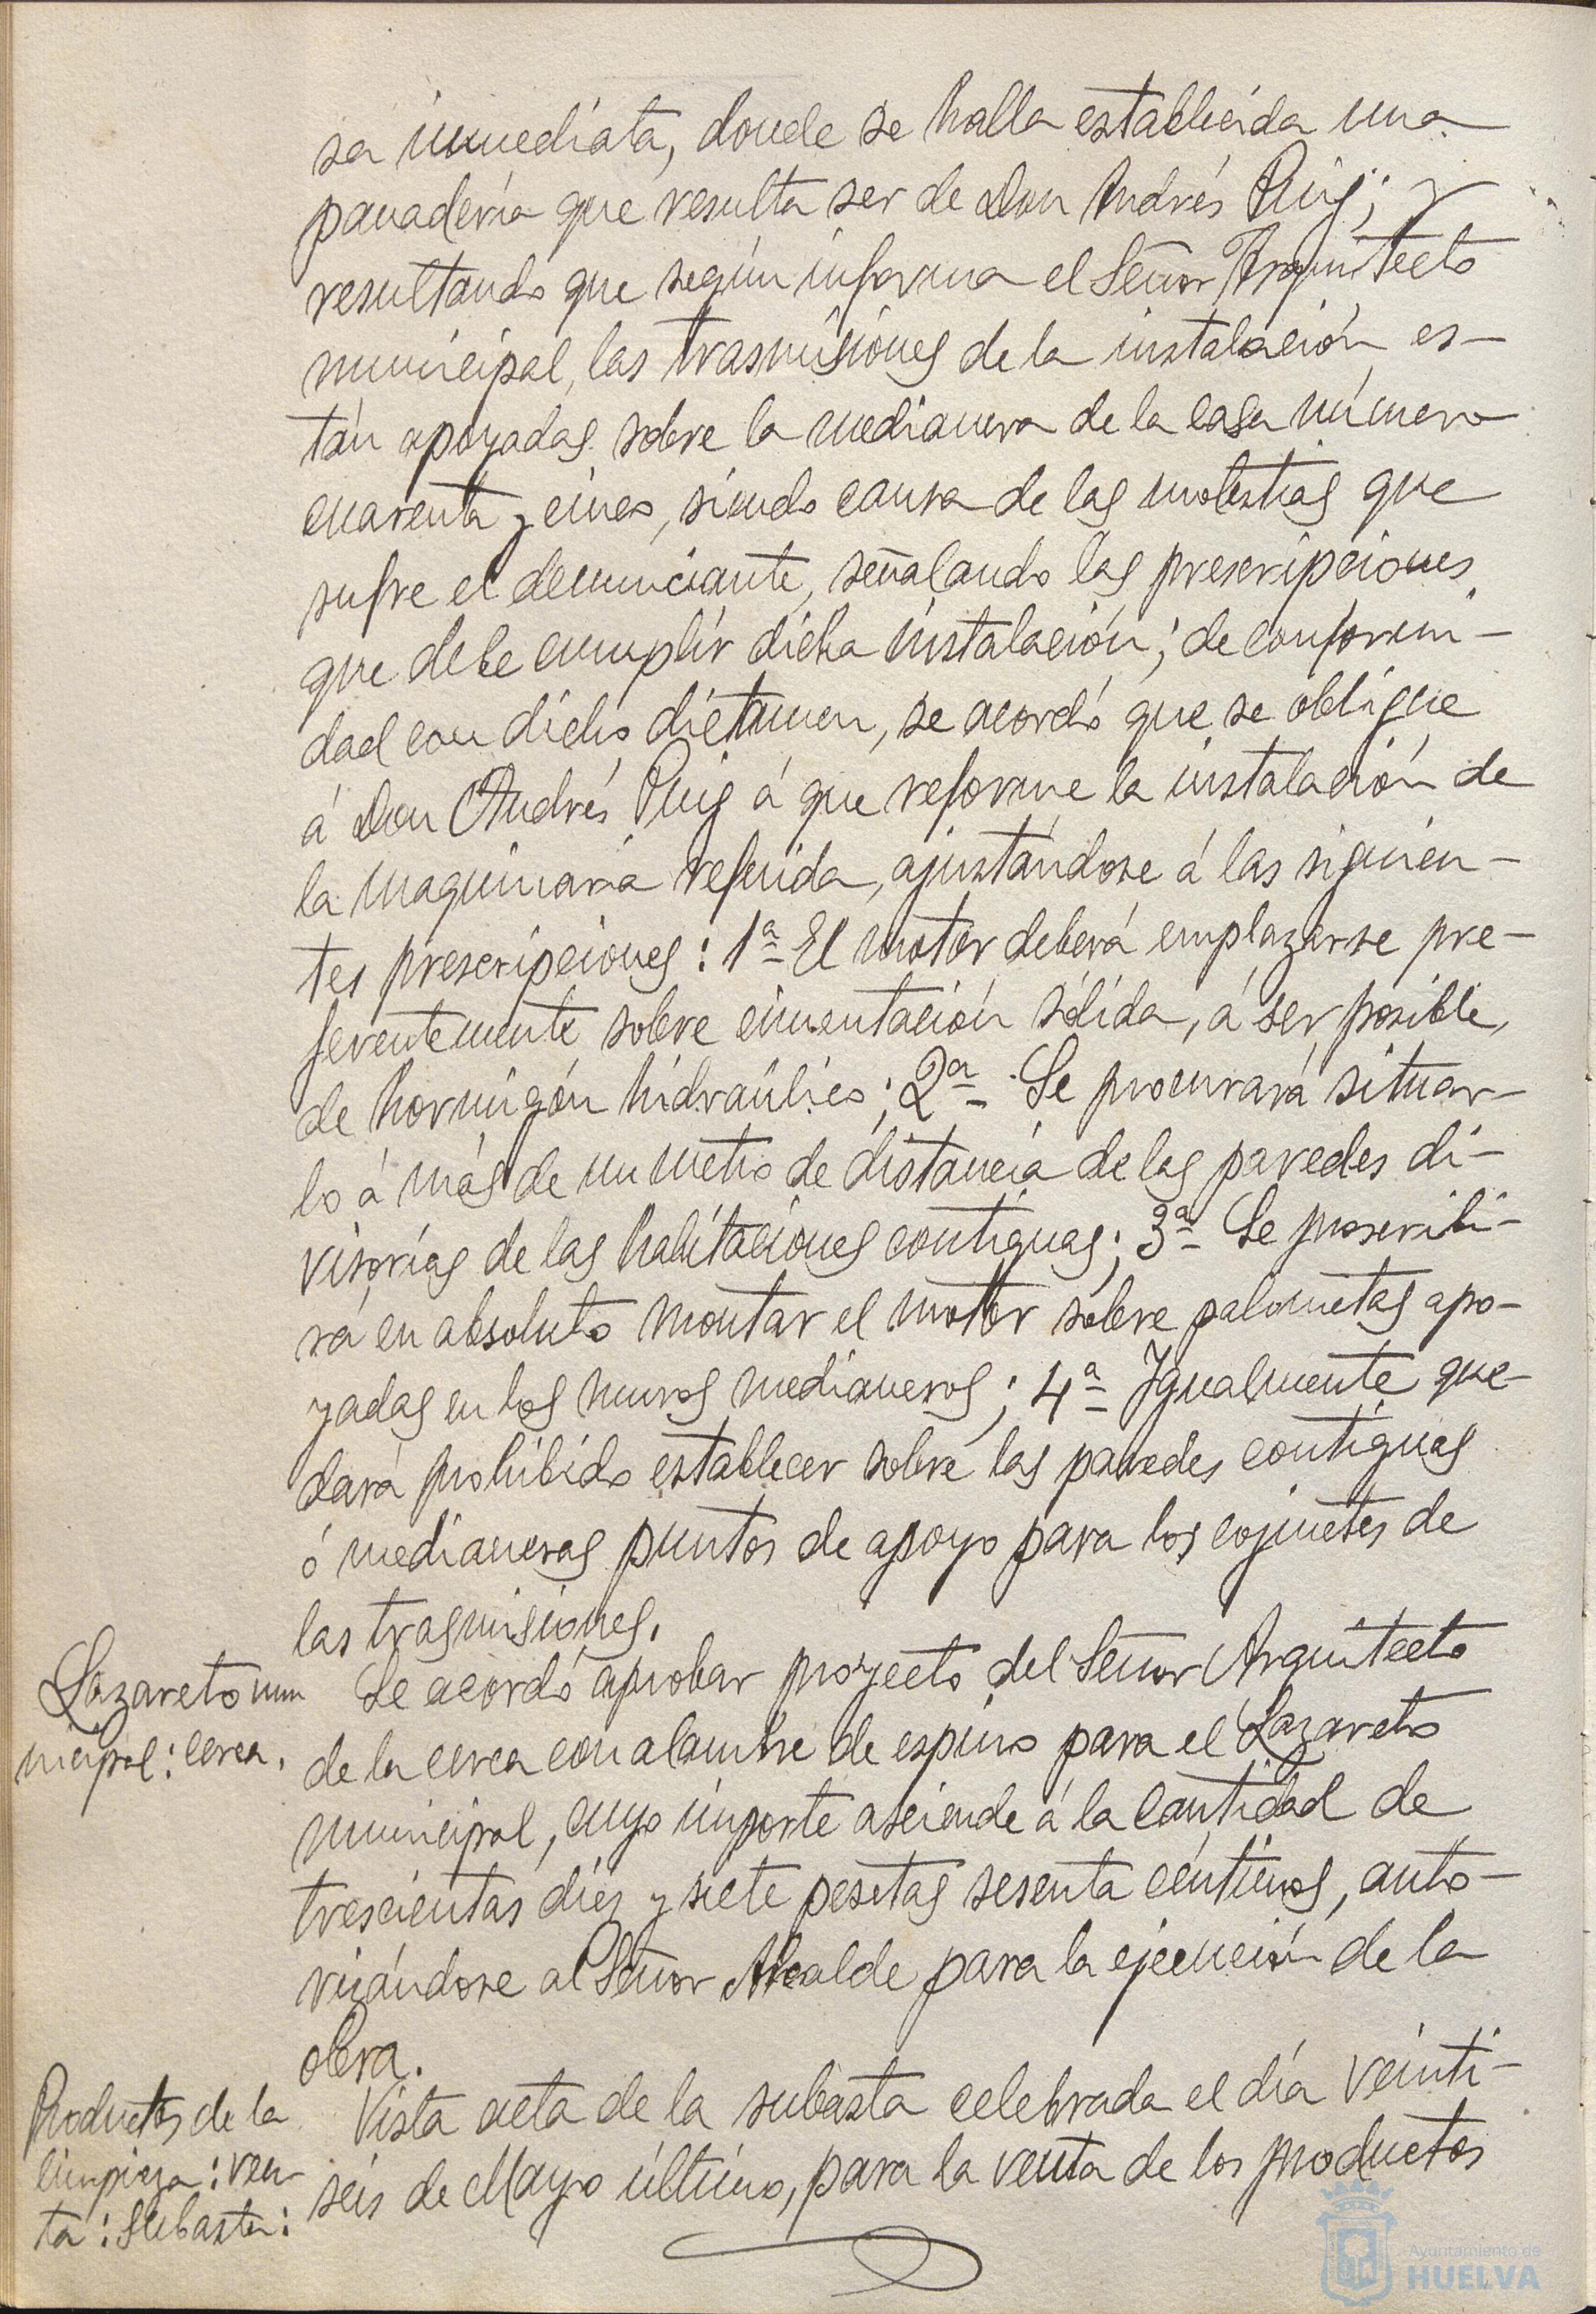 sa inmediata, donde se halla establecida una
panadería que resulta ser de Don Andrés Puig; y
resultando que según informa el Señor Arquitecto
municipal, las trasmisiones de la instalación es-
tán apoyadas sobre la medianera de la casa número
cuarenta y cinco, siendo causa de las molestias que
sufre el denunciante, señalando las prescripciones
que debe cumplir dicha instalación; de conformi-
dad con dicho dictamen, se acordó que se obligue
á Don Andrés Puig á que reforme la instalación de
la maquinaria referida, ajustándose á las siguien-
tes prescripciones: 1ª El motor deberá emplazarse pre-
ferentemente sobre cimentación sólida, á ser posible,
de hormigón hidraúlico; 2ª Se procurará situar-
lo á más de un metro de distancia de las paredes di-
visorias de las habitaciones contiguas; 3ª Se proscribi-
rá en absoluto montar el motor sobre palometas apo-
yadas en los muros medianeros; 4ª Igualmente que-
dará prohibido establecer sobre las paredes contiguas
ó medianeras puntos de apoyo para los cojinetes de
las trasmisiones.
Lazareto mu
nicipal: cerca.
Se acordó aprobar proyecto del Señor Arquitecto
de la cerca con alambre de espino para el Lazareto
municipal, cuyo importe asciende á la cantidad de
trescientas diez y siete pesetas sesenta céntimos, auto-
rizándose al Señor Alcalde para la ejecución de la
obra.
Productos de la
limpieza: ven-
ta: Subasta:
Vista acta de la subasta celebrada el día veinti-
seis de Mayo último, para la venta de los productos
Ayuntamiento de
HUELVA